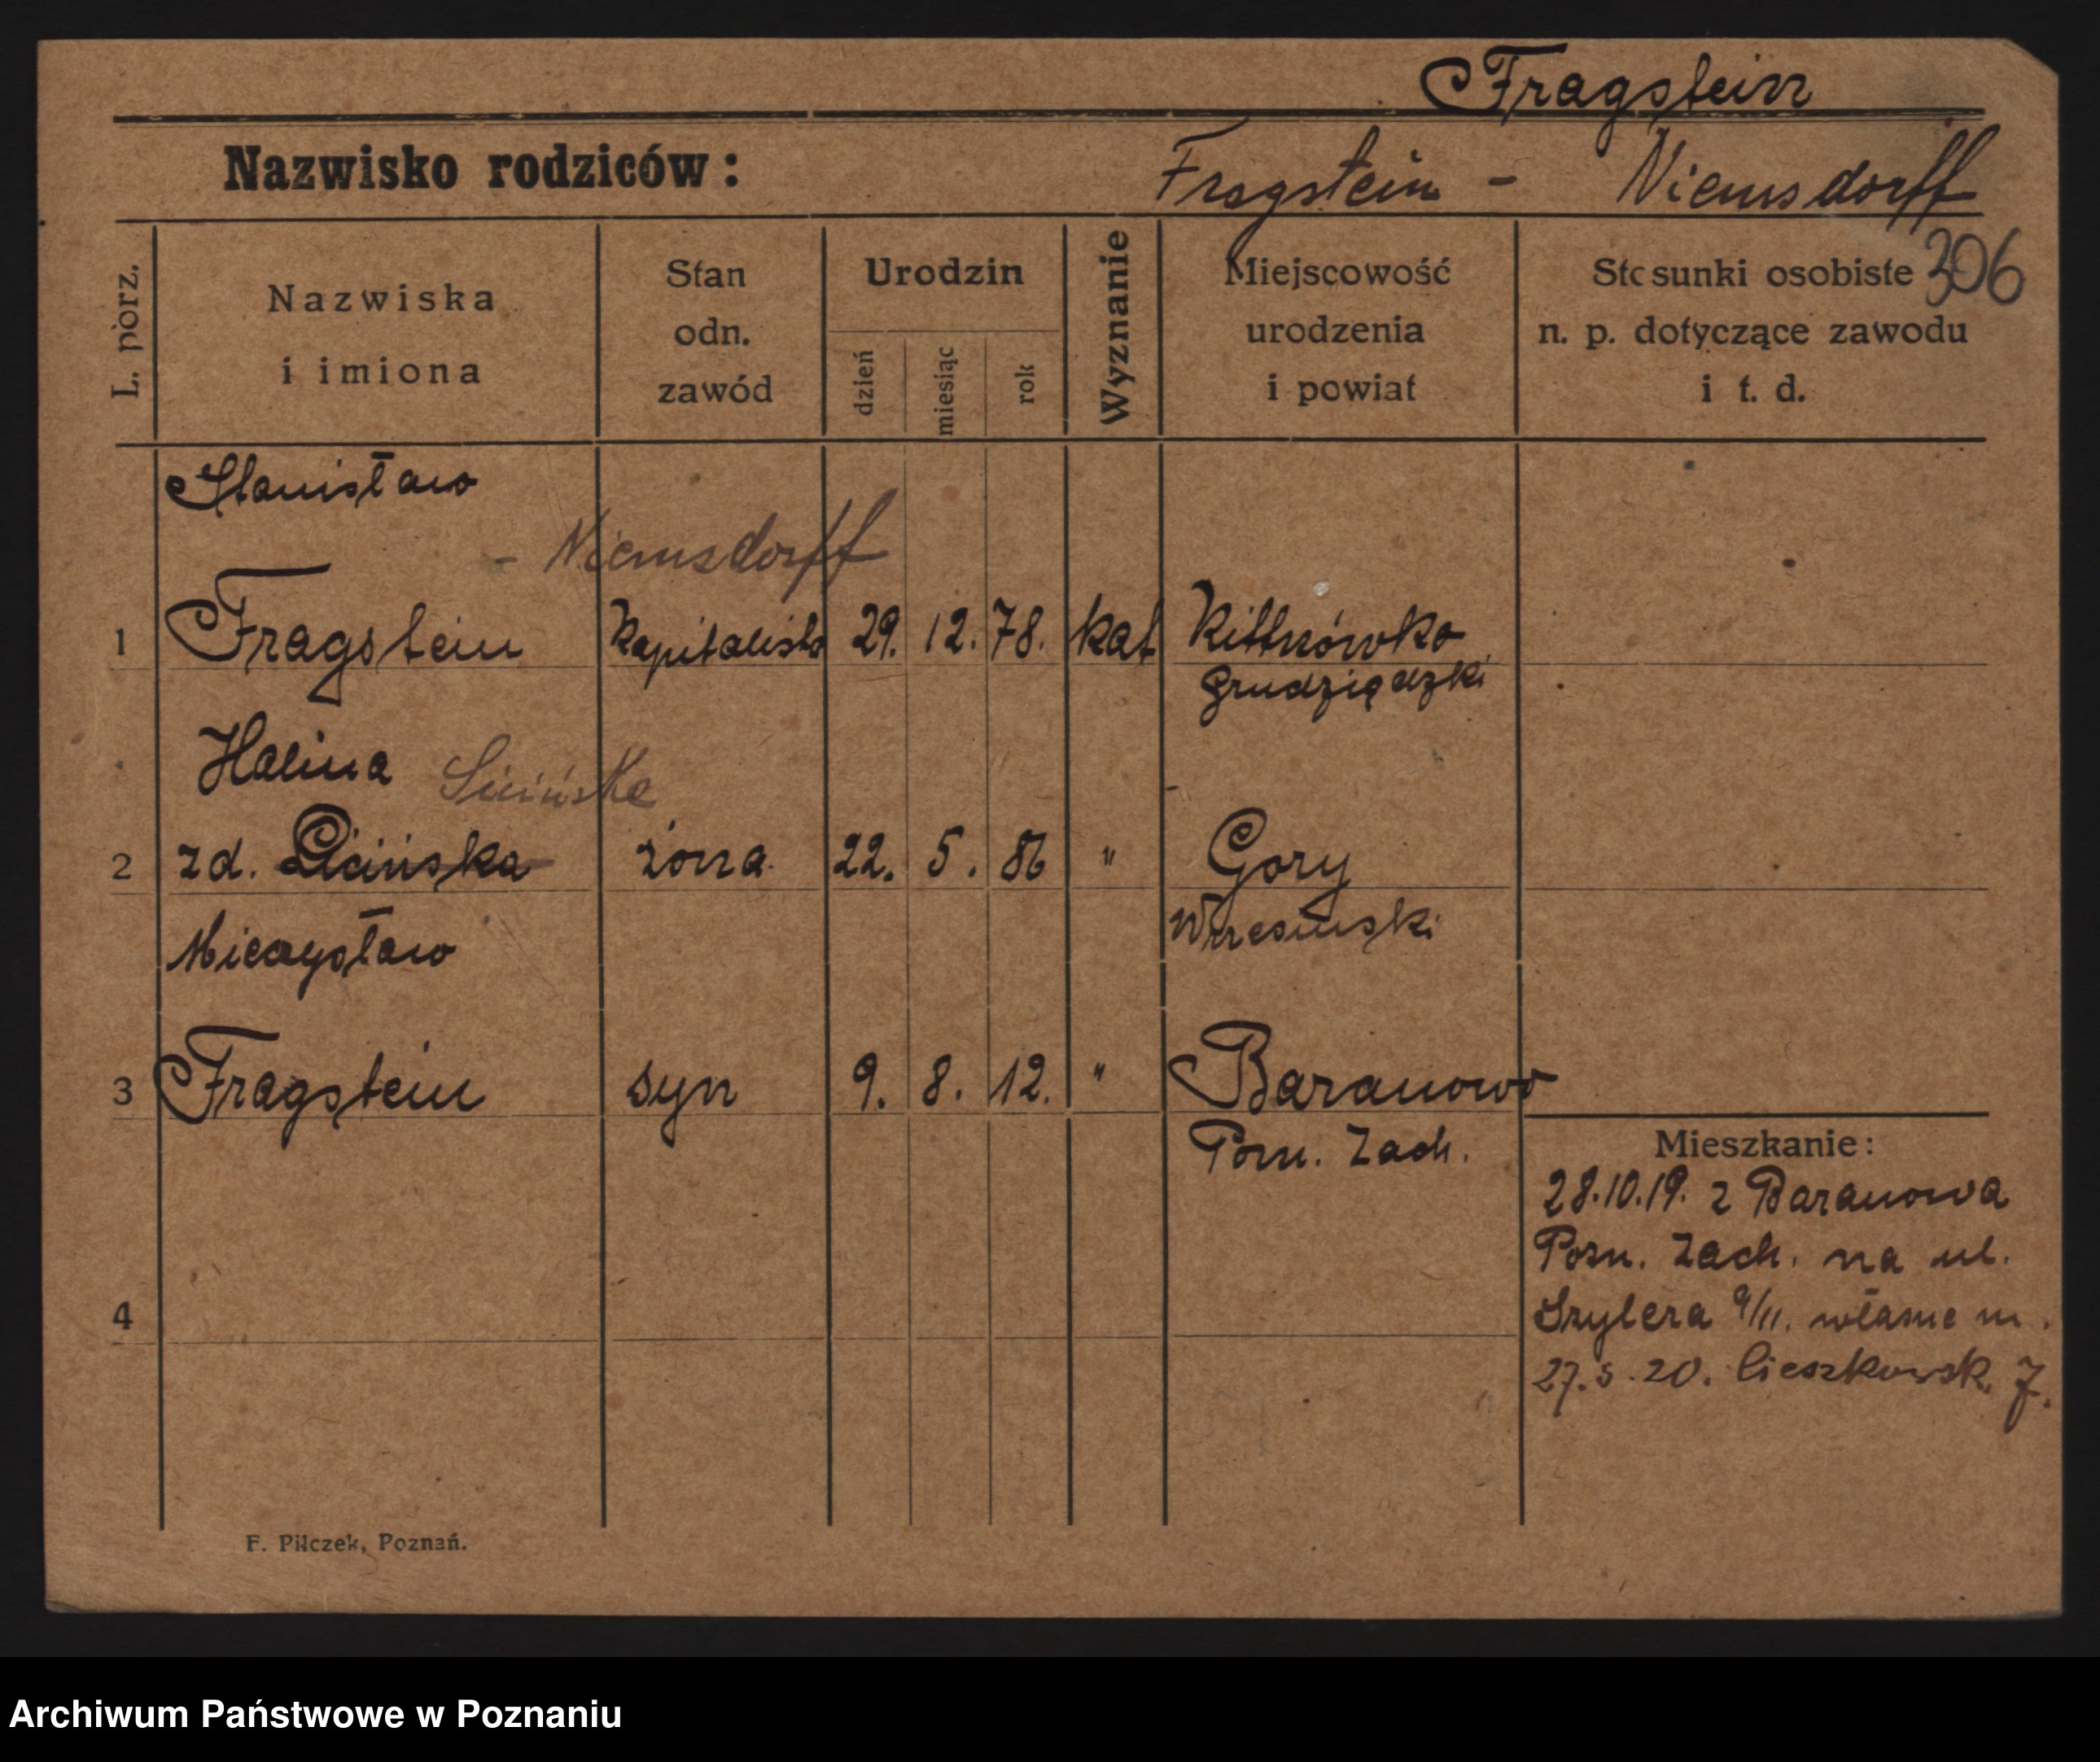 Fragstein
Nazwisko rodziców: Fragstein - Niemsdorff
306
L. porz.
Nazwiska i imiona
Stan odn. zawód
Urodzin
dzień miesiąc rok
Wyznanie
Miejscowość urodzenia i powiat
Stosunki osobiste n. p. dotyczące zawodu i t. d.
Stanisław
- Niemsdorff
1 Fragstein kapitalista 29. 12. 78. kat Kittnówko
Grudziądzki
Halina Sicińska
2 zd. Licińska żona 22. 5. 86 " Gory
Wrzesiński
Mieczysław
3 Fragstein syn 9. 8. 12. " Baranowo
Pozn. Zach.
Mieszkanie:
28.10.19. z Baranowa
Pozn. Zach. na ul.
Szylera 9/II. własne m.
27.5.20. Cieszkowsk. 7.
4
F. Pilczek, Poznań.
Archiwum Państwowe w Poznaniu